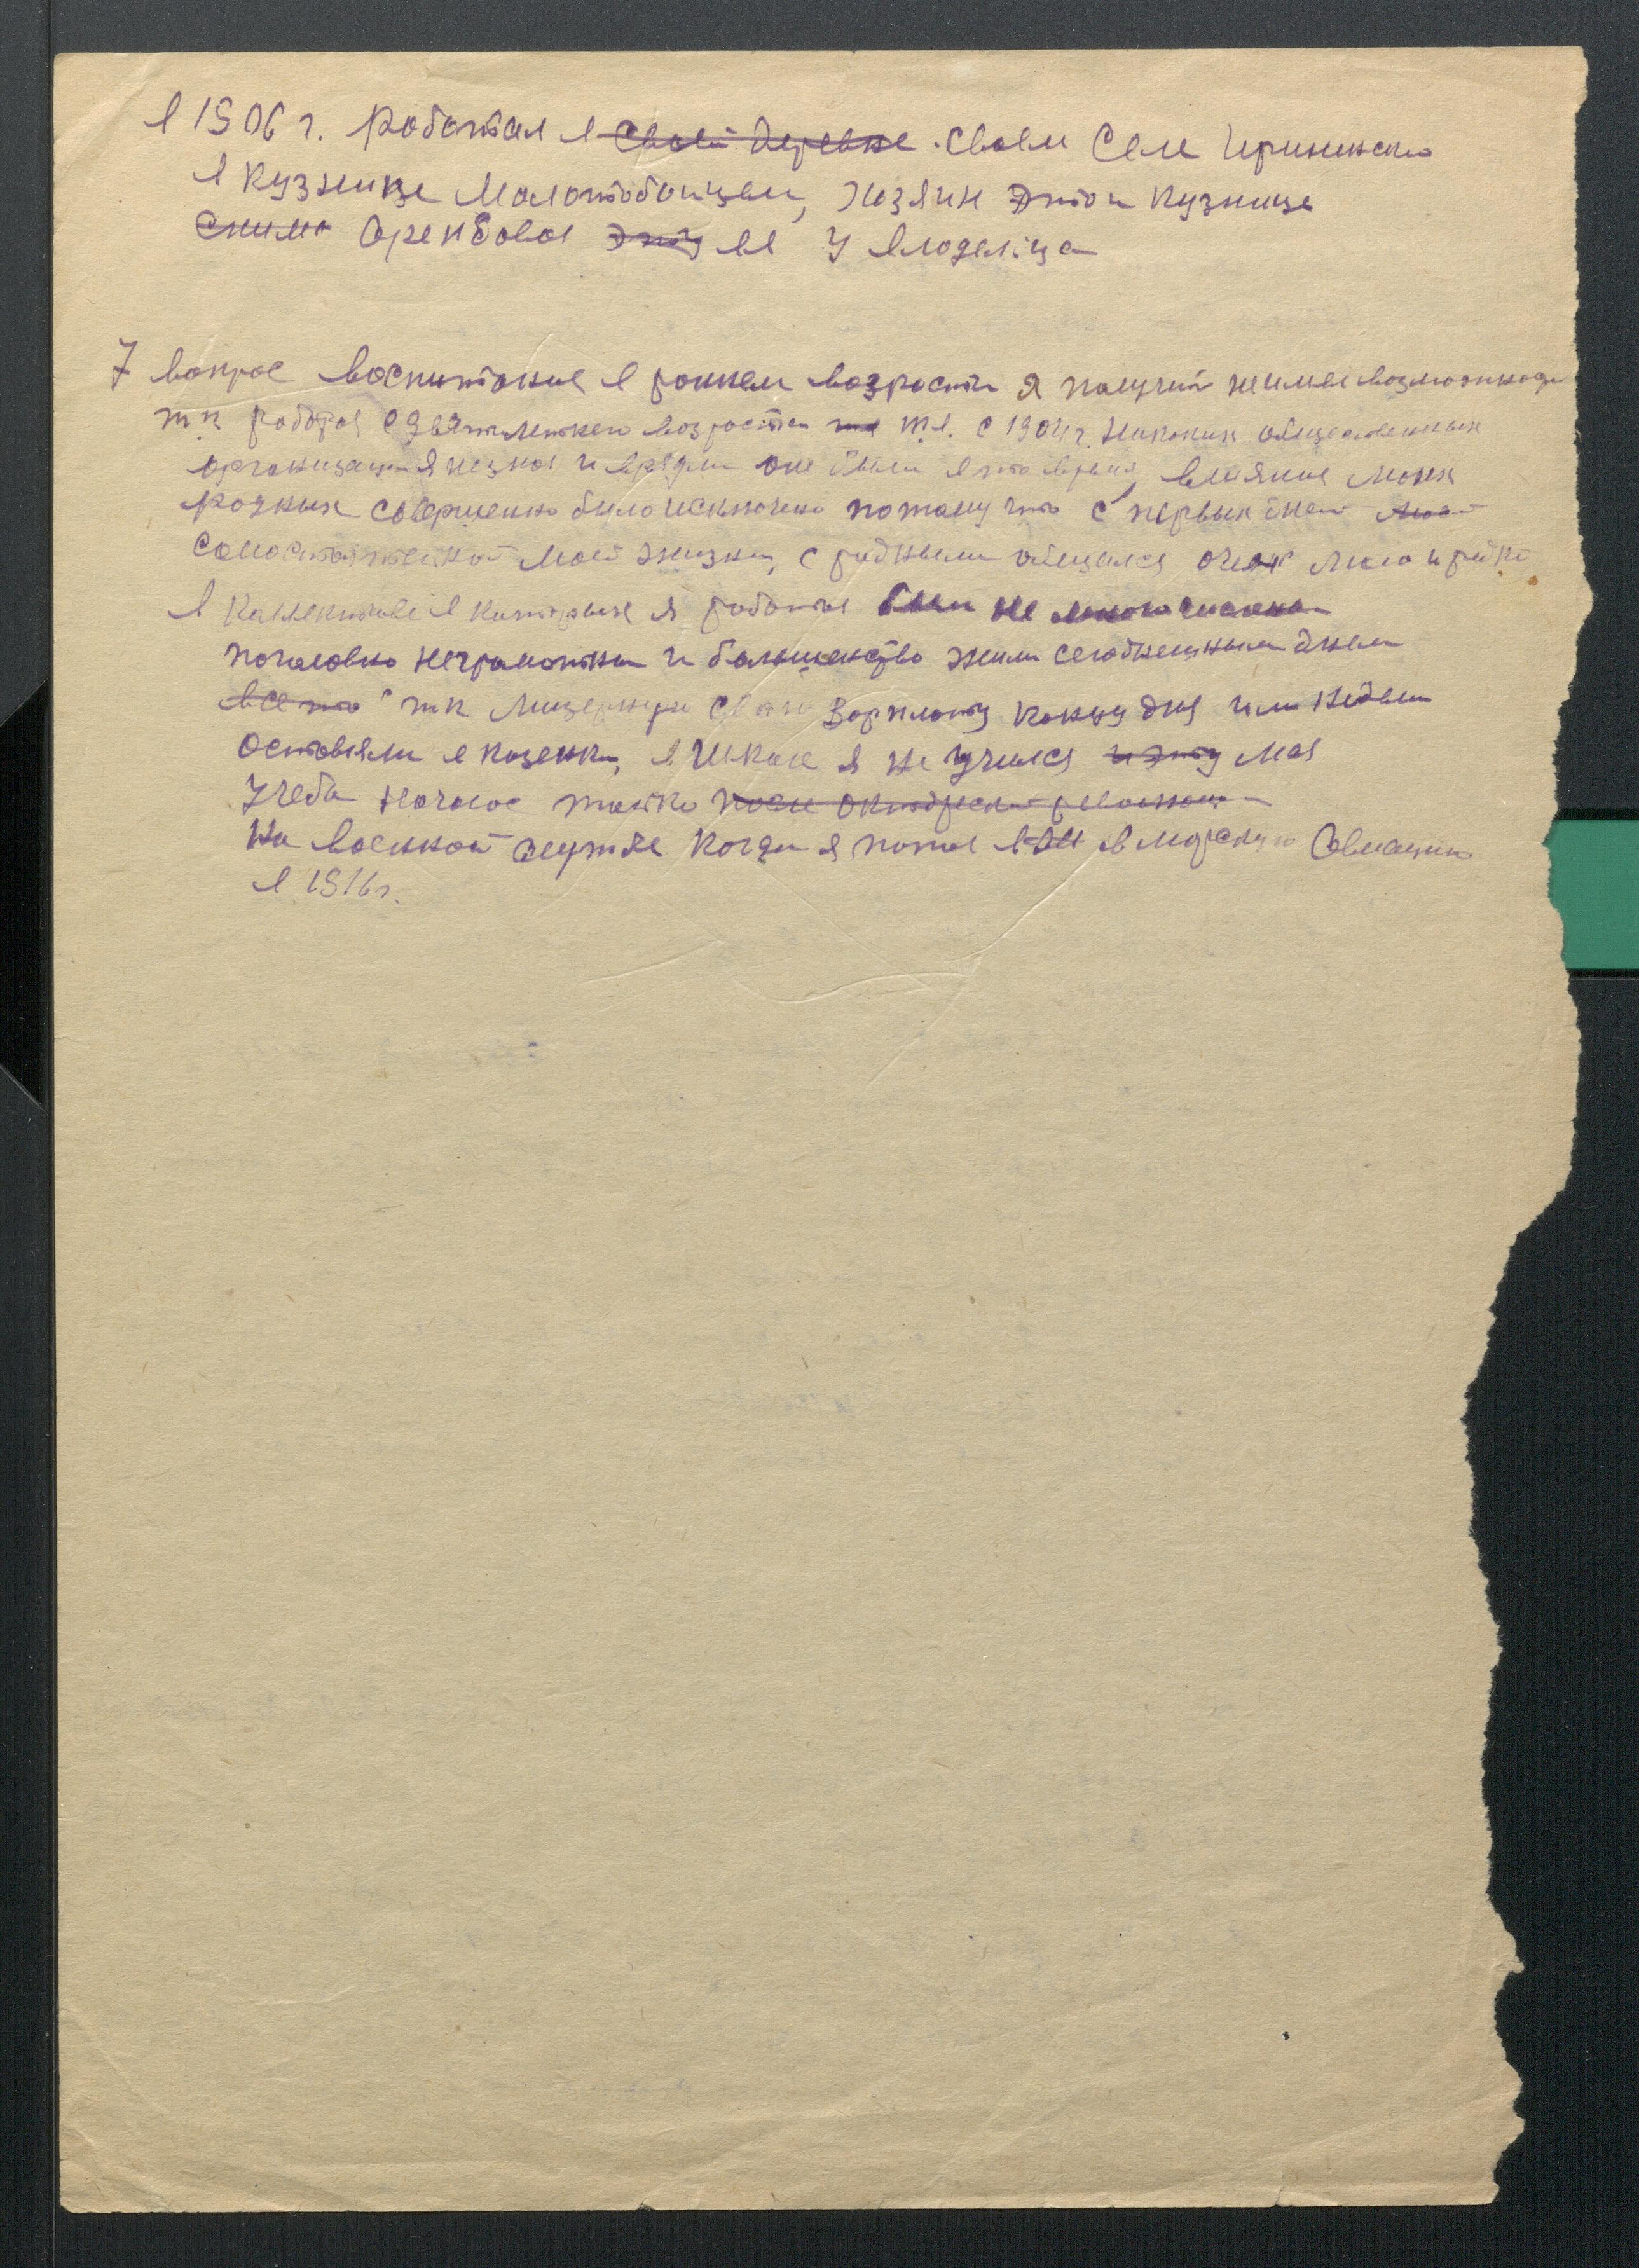 в 1906 г. Работал в своей деревне. своем Селе
в кузнице Молотобойцем, Хозяин этои кузнице
снимо Арендовал эту ее У владелца
7 вопрос воспитание в раннем возрасти я получит не имел возможнода
т.к. работал с девятилетнего возраста т.е. с 1904 г. Никаких общественных
организаций я незнал и врядли они были в то время, влияние моих
родных совершенно было исключено потому что с первых дней моей
самостоятельной моей жизни, с родными общался очень мало и редко
в коллективе в которых я работал были не многочисленны
поголовно неграмотны и большенство жили сегодняшным днем
все то т.к мизерную свою зарплату концу дня или недели
оставляли в казенки, в школе я не учился и эту моя
Учеба началас только после октябрской революции
на военной службе когда я попал в в морскую Авиацию
в 1916 г.